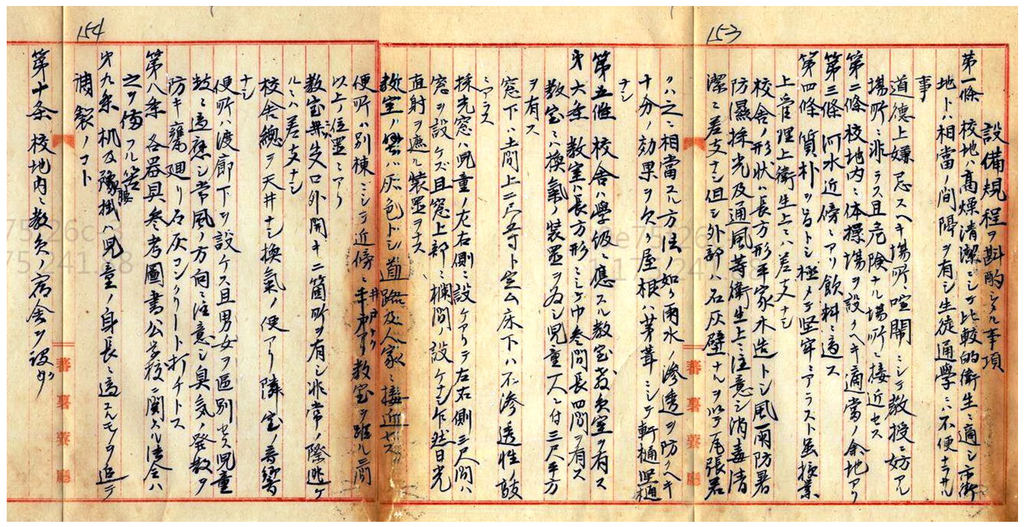 153
設備規程ヲ斟酌シタル事項
第一條 校地ハ高燥清潔ニシテ比較的衛生ニ適シ市街
地トハ相當ノ間隔ヲ有シ生徒通學ニハ不便ナラサル
事
道德上嫌忌スヘキ場所、喧鬧ニシテ教授ニ妨アル
場所ニ非ラス且危険ナル場所ニ接近セス
第二條 校地内ニ体操場ヲ設クヘキ適當ノ余地アリ
第三條 河水近傍ニアリ飲料ニ適ス
第四條 質朴ヲ旨トシ極メテ堅牢ニアラスト虽授業
上管理上衛生上ニハ差支ナシ
校舎ノ形状ハ長方形平家木造トシ風雨防暑
防濕採光及通風等衛生上ニ注意シ消毒清
潔ニ差支ナシ但シ外部ハ石灰壁ナルヲ以テ
ハ之ニ相當スル方法ノ如ク雨水ノ滲透ヲ防クヘキ
十分ノ効果ヲ欠ク屋根ハ茅葺ニシテ軒樋竪樋
ナシ
第五條 校舎ハ學級ニ應スル教室教員室ヲ有ス
第六条 教室ハ長方形ニシテ巾叁間長四間ヲ有ス
教室ニハ換氣ノ装置ヲ為シ児童一人ニ付三尺平方
ヲ有ス
窓下ハ土間上ニ六寸トシ床下ハ不滲透性
ニアラス
採光窓ハ児童ノ左右側ニ設ケアリテ左右側三尺間ハ
窓ヲ設ケズ且窓上部ニ欄間設ケナシ乍然日光
直射ヲ遮ル装置ヲナス
教室ノ壁ハ灰色トシ道路及人家ニ接近セス
154
便所ハ別棟ニシテ近傍ニ井戸ナク教室ヲ距ル二間
以上ノ位置ニアリ
教室無支口外開キ二箇所ヲ有シ非常ノ際逃ケ
ルニハ差支ナシ
校舎總テ天井ナシ換氣ノ便アリ隣室ノ音響
ナシ
便所ハ渡廊下ヲ設ケス且男女ヲ區別セス児童
数ニ適應シ常風ノ方向ニ注意シ臭氣ノ発散ヲ
防キ甕廻リ石灰コンクリート打チトス
第八条 各器具参考圖書公学校ニ関スル法令ハ
之ヲ備フル筈
第九条 机及腰掛ハ児童ノ身長ニ適スルモノヲ追テ
調製ノコト
第十条 校地内ニ教員ノ宿舎ヲ設ク
蕃薯藔廳
蕃薯藔廳